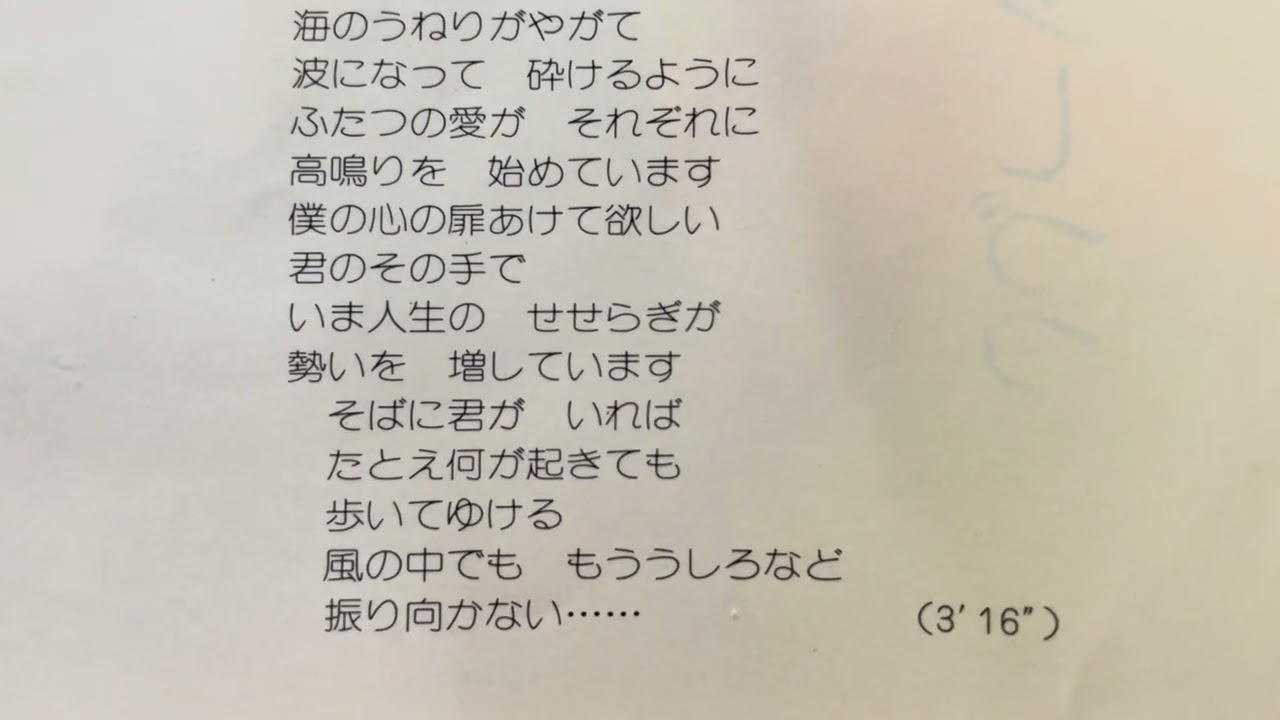 海のうねりがやがて
波になって　砕けるように
ふたつの愛が　それぞれに
高鳴りを　始めています
僕の心の扉あけて欲しい
君のその手で
いま人生の　せせらぎが
勢いを　増しています
そばに君が　いれば
たとえ何が起きても
歩いてゆける
風の中でも　もううしろなど
振り向かない……
（3′16″）